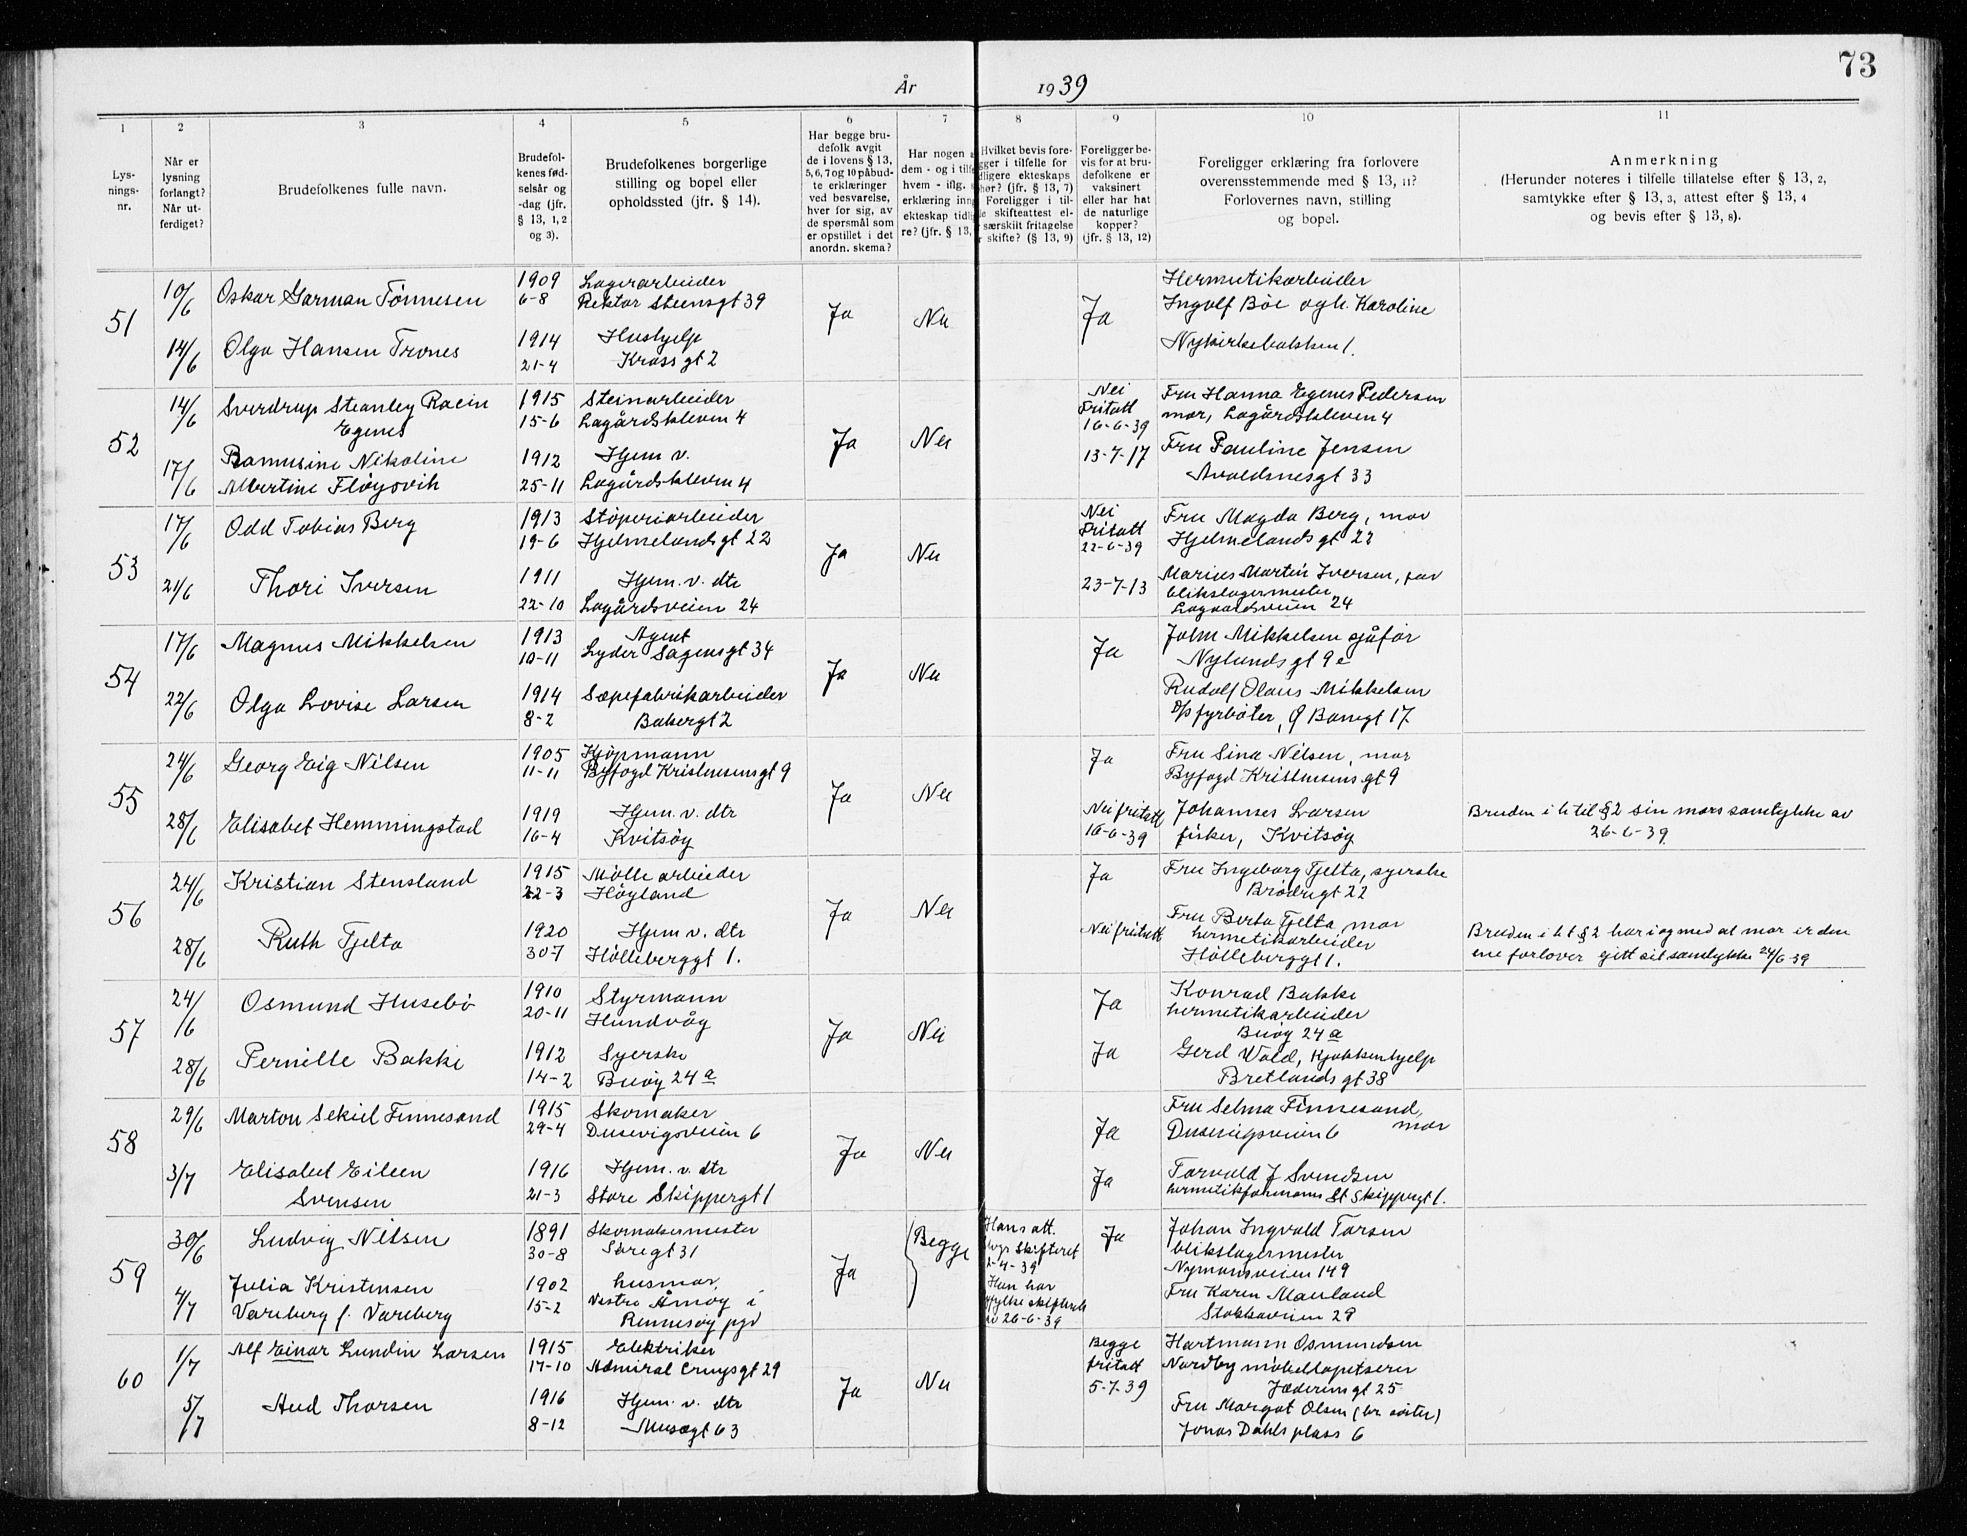 73
År 1939
1 2 3 4 5 6 7 8 9 10 11
Lys-
nings-
nr.
Når er
lysning
forlangt?
Når ut-
ferdiget?
Brudefolkenes fulle navn.
Brudefol-
kenes fød-
selsår og
-dag (jfr.
§ 13, 1, 2
og 3).
Brudefolkenes borgerlige
stilling og bopel eller
opholdssted (jfr. § 14).
Har begge bru-
defolk avgit
de i lovens § 13,
5, 6, 7 og 10 påbud-
te erklæringer
ved besvarelse,
hver for sig, av
de spørsmål som
er opstillet i det
anordn. skema?
Har nogen
dem - og i
hvem - iflg.
erklæring
ekteskap
re? (jfr. § 13,
Hvilket bevis fore-
i tilfelle for
ekteskaps
(jfr. § 13, 7)
Foreligger i til-
skifteattest el-
særskilt fritagelse
skifte? (§ 13, 9)
Foreligger be-
vis for at bru-
defolkene er
vaksinert
eller har hat
de naturlige
kopper?
(jfr. § 13, 12)
Foreligger erklæring fra forlovere
overensstemmende med § 13, 11?
Forlovernes navn, stilling
og bopel.
Anmerkning
(Herunder noteres i tilfelle tillatelse efter § 13, 2,
samtykke efter § 13, 3, attest efter § 13, 4
og bevis efter § 13, 8).
51
10/6 Oskar Garman Tønnesen 1909 Lagerarbeider
6-8 Rektor Steensgt 39
Ja Nei Ja
Hermetikarbeider
Ingolf Bøe og h. Karoline
14/6 Olga Hansen Trones 1914 Hushjelp
21-4 Krossgt 2
Nykirkebakken 1.
52
14/6 Sverdrup Stanley Racin 1915 Steinarbeider
Egenes 15-6 Lagårdskleven 4
Ja Nei
Nei
Fritatt
16-6-39
Fru Hanna Egenes Pedersen
mor, Lagårdskleven 4
17/6 Ramusine Nikoline 1912 Hjem v.
Albertine Fløysvik 25-11 Lagårdskleven 4
13-7-17 Fru Pauline Jensen
Avaldsnesgt 33
53
17/6 Odd Tobias Berg 1913 Støperiarbeider
19-6 Hjelmelandsgt 22
Ja Nei
Nei
Fritatt
22-6-39
Fru Magda Berg, mor
Hjelmelandsgt 22
21/6 Thori Iversen 1911 Hjem. v. dtr
22-10 Lagårdsveien 24
23-7-13 Marius Martin Iversen, far
blikslagermester
Lagaardsveien 24
54
17/6 Magnus Mikkelsen 1913 Agent
10-11 Lyder Sagensgt 34
Ja Nei Ja
John Mikkelsen sjåfør
Nylundsgt 9e
22/6 Olga Lovise Larsen 1914 Sæpefabrikarbeider
8-2 Bakergt 2
Rudolf Olaus Mikkelsen
fyrbøter, Ø Banegt 17
55
24/6 Georg Eig Nilsen 1905 Kjøpmann
11-11 Byfogd Kristensensgt 9
Ja Nei Ja
Fru Sina Nilsen, mor
Byfogd Kristensens gt 9
28/6 Elisabet Hemmingstad 1919 Hjem. v. dtr
16-4 Kvitsøy
Nei fritatt
16-6-39
Johannes Larsen
fisker, Kvitsøy
Bruden i h til § 2 sin mors samtykke av
26-6-39
56
24/6 Kristian Stensland 1915 Mølle arbeider
22-3 Høyland
Ja Nei Ja
Fru Ingeborg Tjelta, syerske
Brødregt 22
28/6 Ruth Tjelta 1920 Hjem v. dtr
30-7 Hølleberggt 1.
Nei fritatt
Fru Berta Tjelta, mor
hermetikarbeider
Hølleberggt 1.
Bruden i h t § 2 har i og med at mor er den
ene forlover gitt sit samtykke 24/6-39
57
24/6 Osmund Husebø 1910 Styrmann
20-11 Hundvåg
Ja Nei Ja
Konrad Bakke
hermetikarbeider
Buøy 24a
28/6 Pernille Bakke 1912 Syerske
14-2 Buøy 24a
Ja Gerd Wold, Kjøkkenhjelp
Bretlandsgt 38
58
29/6 Marton Sekiel Finnesand 1915 Skomaker
29-4 Dusevigsveien 6
Ja Nei Ja
Fru Selma Finnesand,
Dusevigsveien 6 mor
3/7 Elisabet Eileen 1916 Hjem. v. dtr
Svensen 21-3 Store Skippergt 1
Ja Torvald J Svendsen
hermetikformann St Skippergt 1.
59
30/6 Ludvig Nilsen 1891 Skomakermester
30-8 Søregt 31
Ja Begge
Hans att.
Skifteret
2-4-39
Ja Johan Ingvald Tarsen
blikslagermester
Nymansveien 149
4/7 Julia Kristensen 1902 husmor,
Vareberg f. Vareberg 15-2 Vestre Åmøy i
Rennesøy pgd
Hun har
26-6-39
Fru Karen Mauland
Stokkaveien 29
60
1/7 Alf Einar Lundin Larsen 1915 Elektriker
17-10 Admiral Cruysgt 29
Ja Nei
Begge
fritatt
5-7-39
Hartmann Osmundsen
Nordby møbeltapetserer
Jæderensgt 25
5/7 Aud Thorsen 1916 Hjem. v. dtr
8-12 Musægt 63
Fru Margot Olsen (br. søster)
Jonas Dahls plass 6